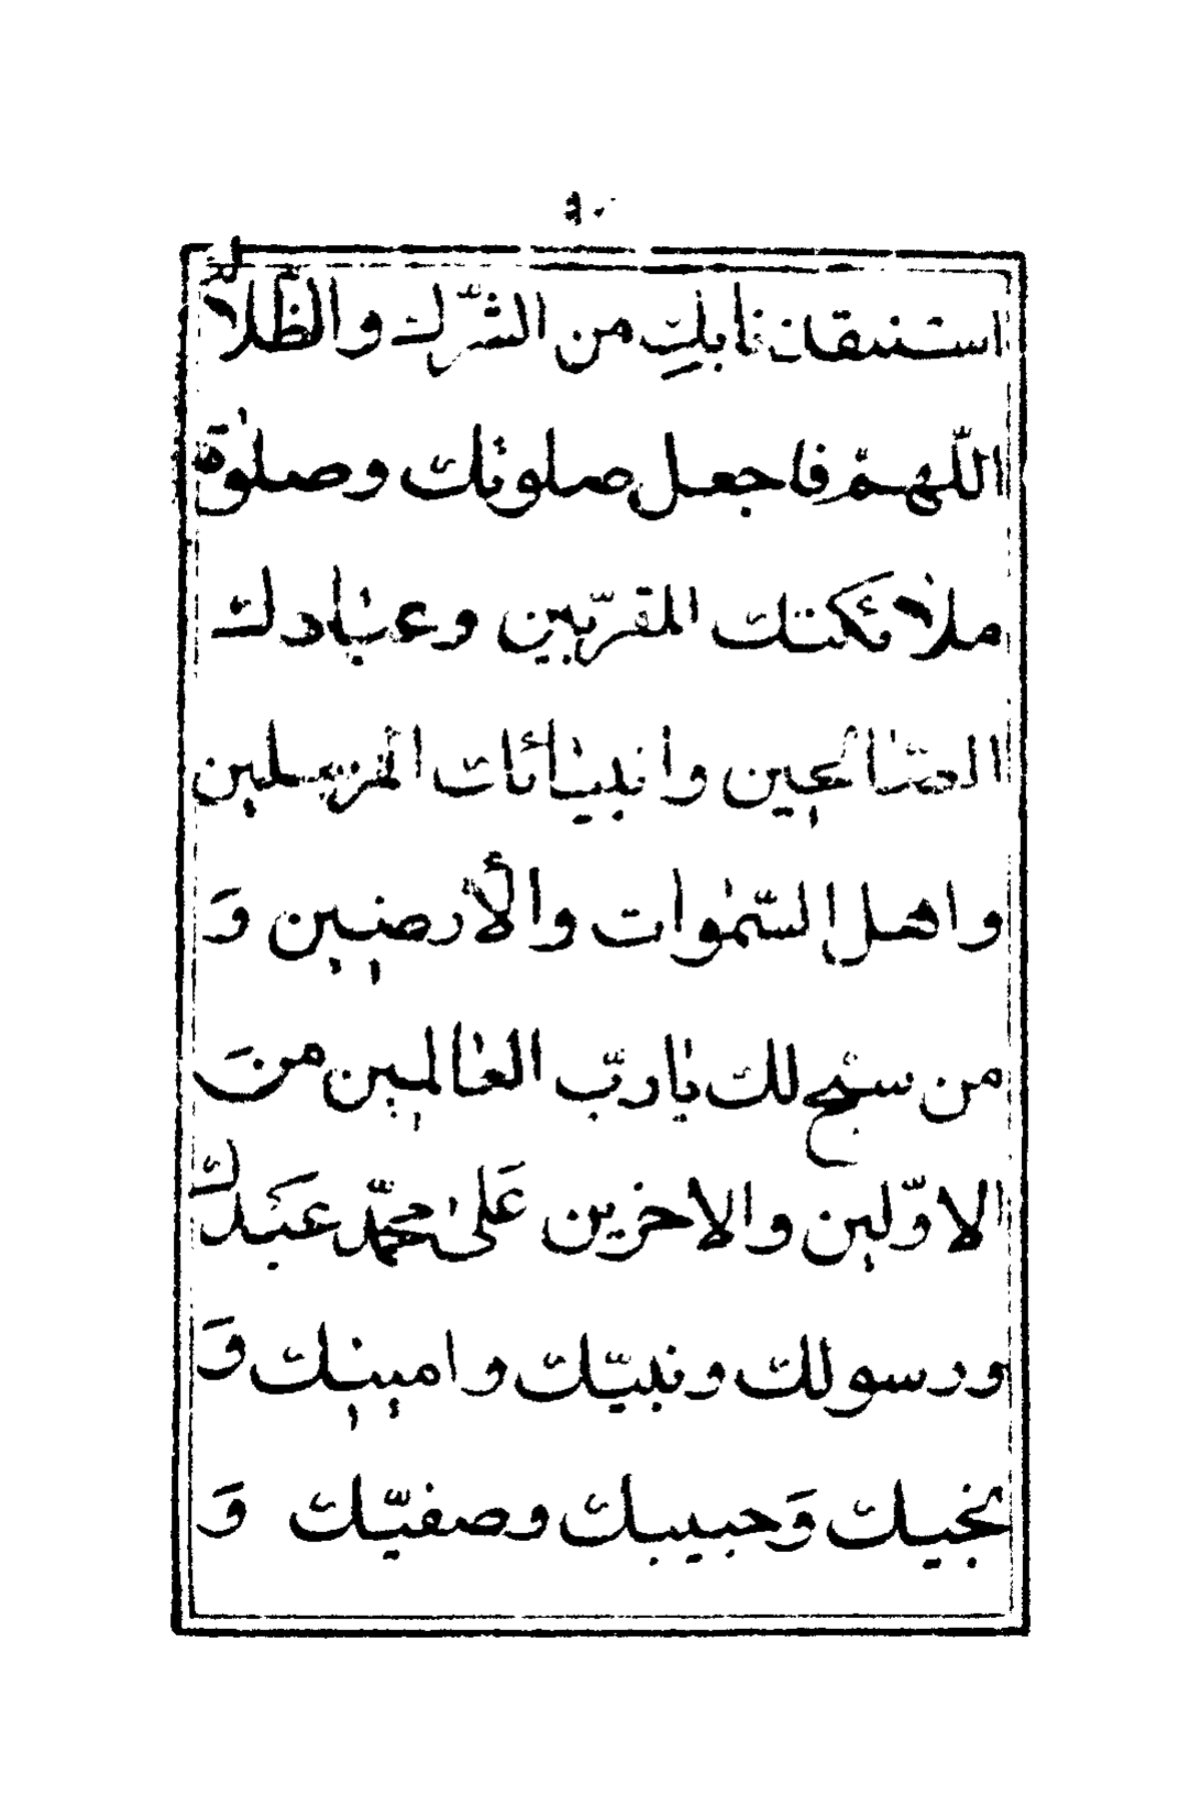 استنقذتنا بك من الشّرك والظّلالة
اللّهمّ فاجعل صلوتك وصلوة
ملائكتك المقرّبين وعبادك
الصّالحين وأنبيائك المرسلين
واهل السّموات والأرضين وَ
من سبّح لك يا ربّ العالمين من
الاوّلين والاخرين على محمّد عبدك
ورسولك ونبيّك وامينك وَ
نجيك وَحبيبك وصفيّك وَ